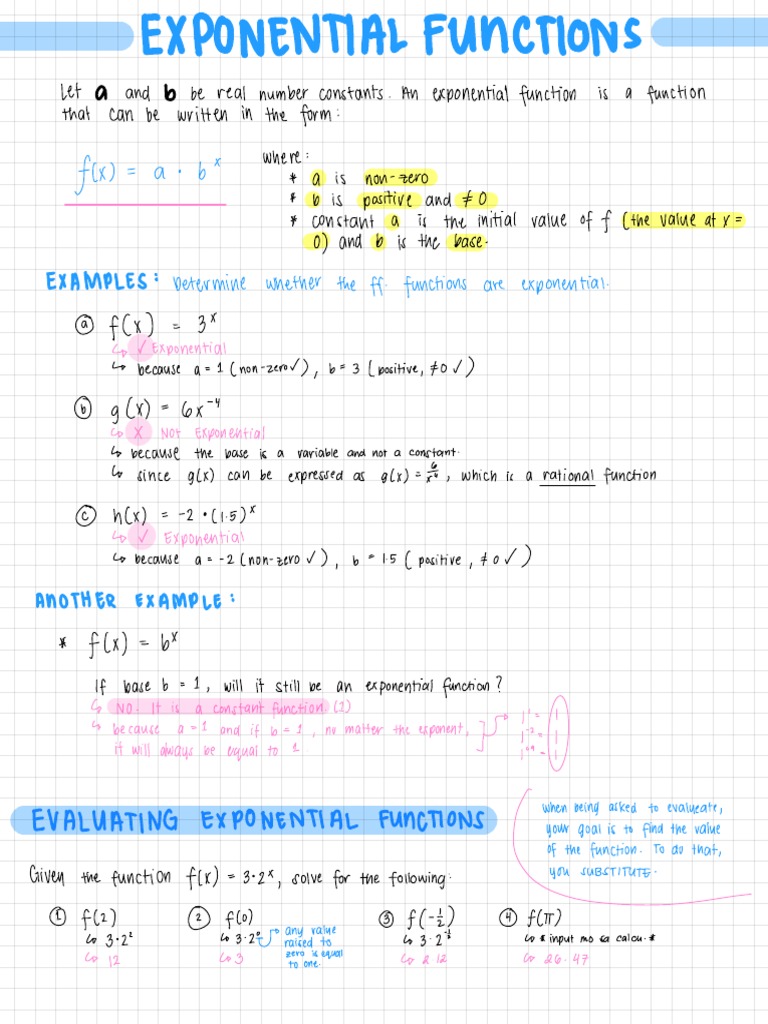 EXPONENTIAL FUNCTIONS
Let a and b be real number constants. An exponential function is a function
that can be written in the form:
f(x) = a · b^x
where:
* a is non-zero
* b is positive and ≠ 0
* constant a is the initial value of f (the value at x =
0) and b is the base.
EXAMPLES: Determine whether the ff. functions are exponential.
ⓐ f(x) = 3^x
↳ ✓ Exponential
↳ because a = 1 (non-zero ✓), b = 3 (positive, ≠ 0 ✓)
ⓑ g(x) = 6x^-4
↳ X Not Exponential
↳ because the base is a variable and not a constant.
↳ since g(x) can be expressed as g(x) = 6/x^4, which is a rational function
ⓒ h(x) = -2 • (1.5)^x
↳ ✓ Exponential
↳ because a = -2 (non-zero ✓), b = 1.5 (positive, ≠ 0 ✓)
ANOTHER EXAMPLE:
* f(x) = b^x
If base b = 1, will it still be an exponential function?
↳ NO. It is a constant function (1)
↳ because a = 1 and if b = 1, no matter the exponent,
it will always be equal to 1.
1^1 = 1
1^-2 = 1
1^69 = 1
EVALUATING EXPONENTIAL FUNCTIONS
when being asked to evalueate,
your goal is to find the value
of the function. To do that,
you SUBSTITUTE.
Given the function f(x) = 3•2^x, solve for the following:
① f(2)
↳ 3•2^2
↳ 12
② f(0)
↳ 3•2^0
↳ 3
any value
raised to
zero is equal
to one.
③ f(-1/2)
↳ 3•2^-1/2
↳ 2.12
④ f(π)
↳ * input mo sa calcu. *
↳ 26.47